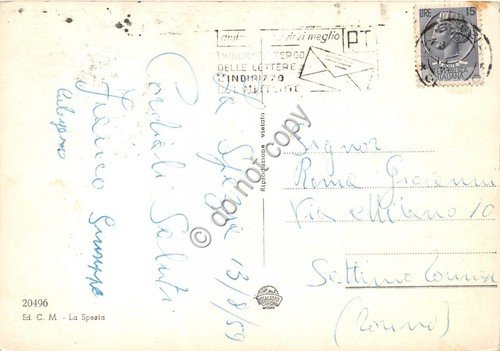 La Spezia 13/8/59
Cordiali Saluti
Franco
Giuseppe
20496
Ed. C. M. - La Spezia
Riproduzione vietata
servirvi meglio
PT
INDICATE A TERGO
DELLE LETTERE
L'INDIRIZZO
DEL MITTENTE
LIRE 15
Signor
Roma Giovanni
Via Milano 10
Settimo Torinese
(Torino)
do not copy